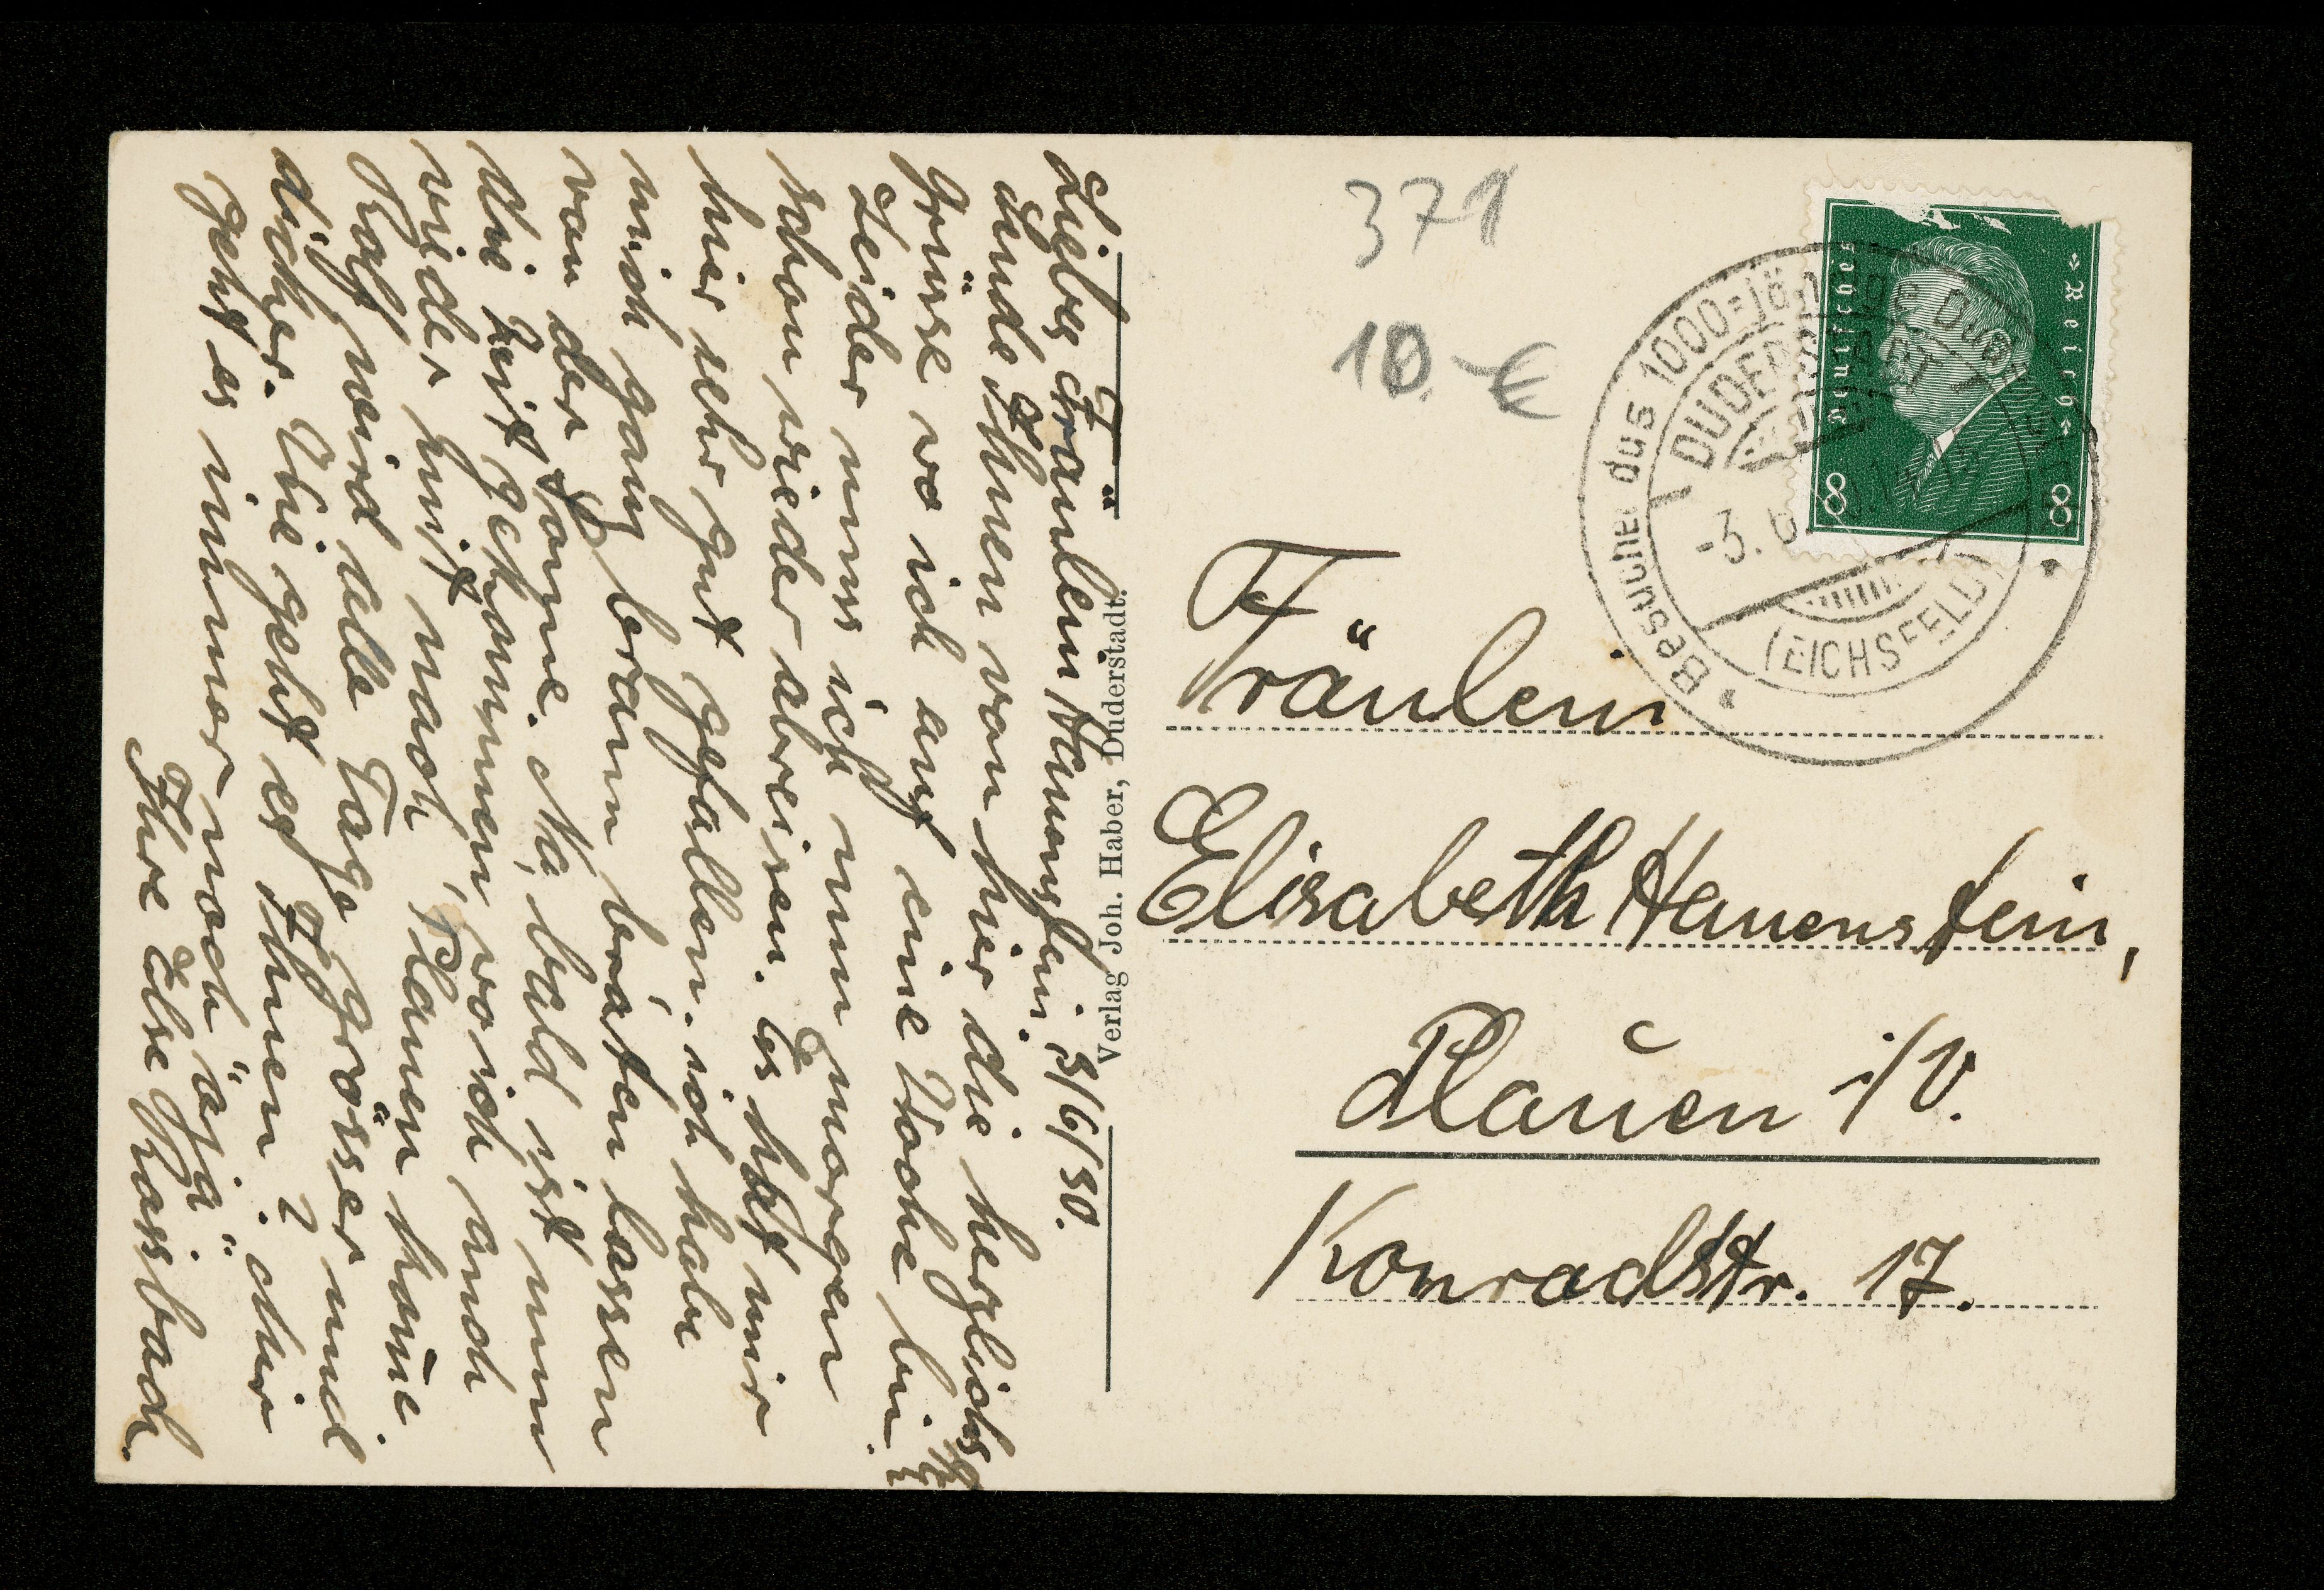 371
10.-€
Deutsches Reich
8 8
Besuchet das 1000-jährige Duderstadt
DUDERSTADT
-3. 6.
(EICHSFELD)
Fräulein
Elisabeth Hauenstein,
Plauen i/V.
Konradstr. 17.
Verlag Joh. Haber, Duderstadt.
Liebes Fräulein Hauenstein. 3/6/30.
Sende Ihnen von hier die herzlichs
Grüsse wo ich auf eine Woche bin.
Leider muss ich nun morgen
schon wieder abreisen. Es hat mir
hier sehr gut gefallen. ich habe
mich ganz braun braten lassen
von der Sonne. Na, bald ist nun
die Zeit gekommen, wo ich auch
wieder mit nach Plauen komme.
Rolf wird alle Tage grösser und
dicker. Wie geht es Ihnen? Mir
geht es immer noch "ganz".
Ihre Else Rossbach.